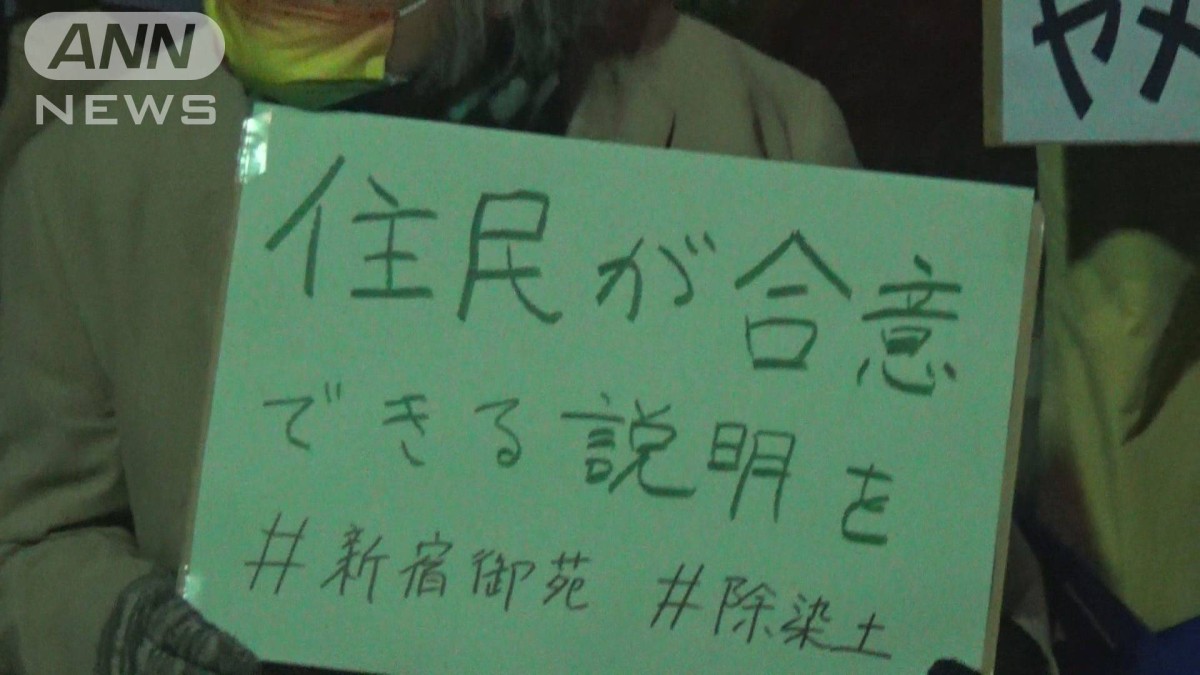 ANN
NEWS
ヤメ
住民が合意
できる説明を
#新宿御苑 #除染土